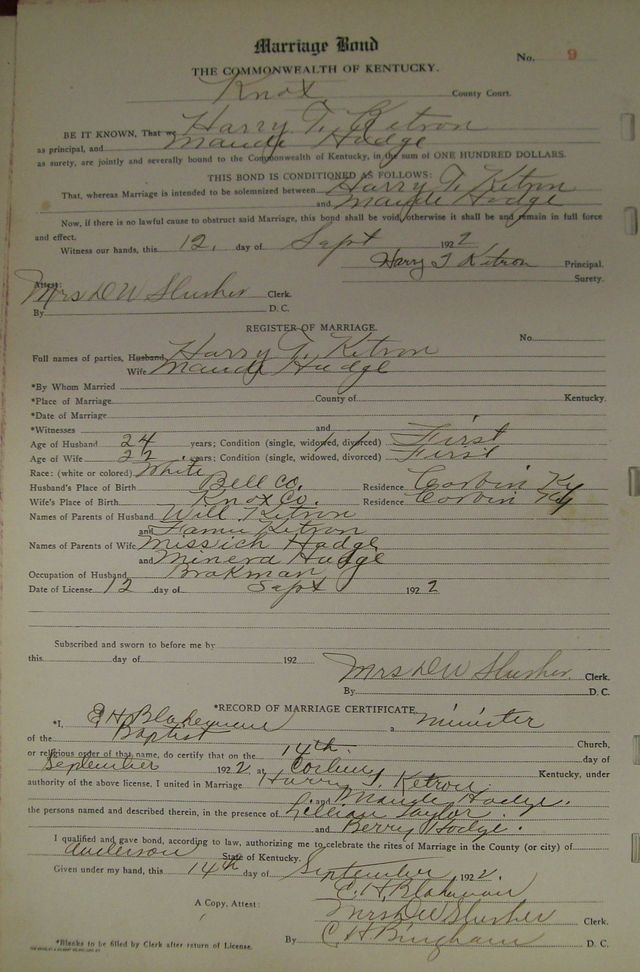 Marriage Bond
No. 9
THE COMMONWEALTH OF KENTUCKY.
Knox County Court.
BE IT KNOWN, That we Harry T. Ketron
as principal, and Maude Hodge
as surety, are jointly and severally bound to the Commonwealth of Kentucky, in the sum of ONE HUNDRED DOLLARS.
THIS BOND IS CONDITIONED AS FOLLOWS:
That, whereas Marriage is intended to be solemnized between Harry T. Ketron
and Maude Hodge
Now, if there is no lawful cause to obstruct said Marriage, this bond shall be void, otherwise it shall be and remain in full force
and effect.
Witness our hands, this 12, day of Sept 1922
Harry T Ketron Principal.
Surety.
Attest:
Mrs D W Slusher Clerk.
By D. C.
REGISTER OF MARRIAGE.
No.
Full names of parties, Husband, Harry T. Ketron
Wife Maude Hodge
*By Whom Married
*Place of Marriage County of Kentucky.
*Date of Marriage
*Witnesses and
Age of Husband 24 years; Condition (single, widowed, divorced) First
Age of Wife 22 years; Condition (single, widowed, divorced) First
Race: (white or colored) White
Husband's Place of Birth Bell Co. Residence Corbin Ky
Wife's Place of Birth Knox Co. Residence Corbin Ky
Names of Parents of Husband Will Ketron
and Ketron
Names of Parents of Wife Hodge
and Hodge
Occupation of Husband Brakman
Date of License 12 day of Sept 1922
Subscribed and sworn to before me by
this day of 192
Mrs D W Slusher Clerk.
By D. C.
*RECORD OF MARRIAGE CERTIFICATE.
*I, E H Blakeman a Minister
of the Baptist Church,
or religious order of that name, do certify that on the 14th. day of
September 1922 at Corbin, Kentucky, under
authority of the above license, I united in Marriage Harry T. Ketron
and Maude Hodge.
the persons named and described therein, in the presence of Lillian Taylor.
and Berry Hodge.
I qualified and gave bond, according to law, authorizing me to celebrate the rites of Marriage in the County (or city) of
Anderson State of Kentucky.
Given under my hand, this 14th day of September 1922.
E. H. Blakeman
A Copy, Attest: Mrs D W Slusher Clerk.
By C H Bingham D. C.
*Blanks to be filled by Clerk after return of License.